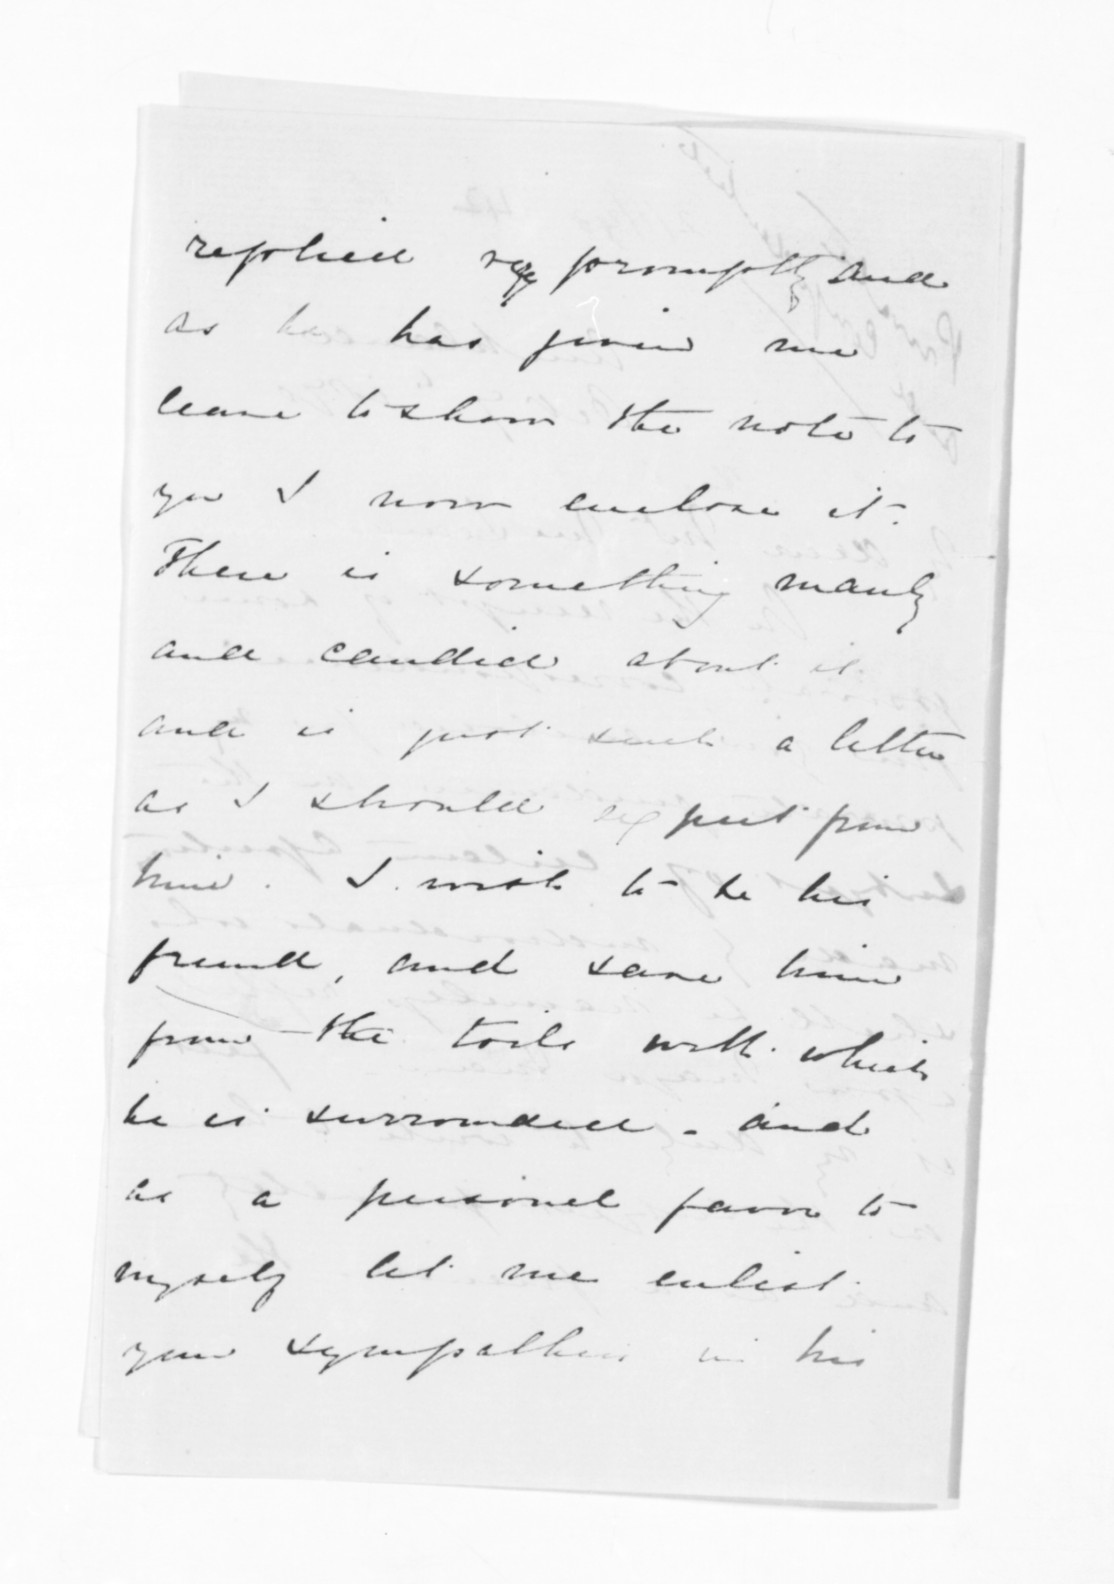 replied promptly and
as he has given me
leave to show the note to
you I now enclose it.
There is something manly
and candid about it
and is just such a letter
as I should expect from
him. I wish to be his
friend, and save him
from the toils with which
he is surrounded. and
as a personal favor to
myself let me enlist
your sympathies in his